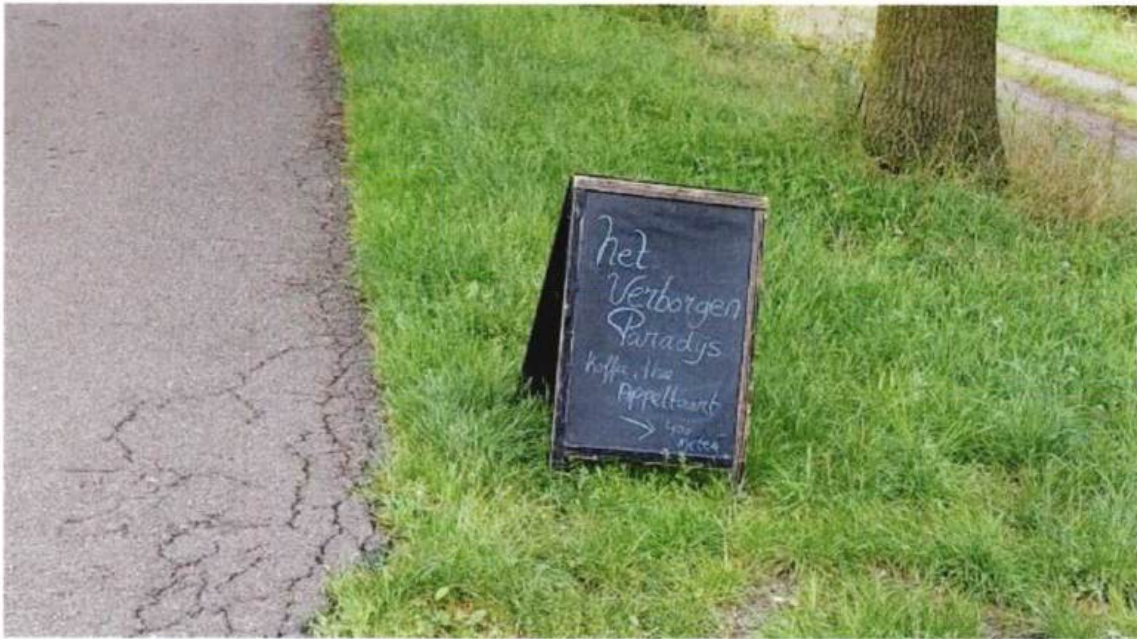 het
Verborgen
Paradijs
koffie, thee
Appeltaart
→ 400
meter